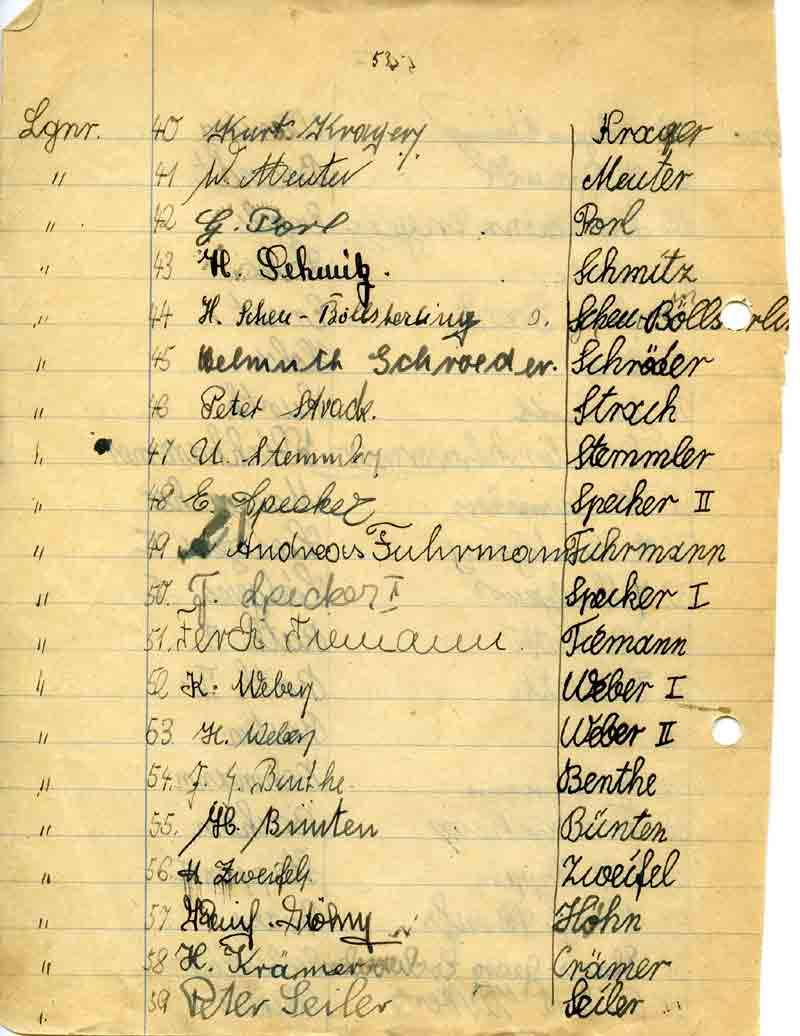 Lgnr. 40 Kurt Krager Krager
" 41 W. Meuter Meuter
" 42 G. Porl Porl
" 43 H. Schmitz. Schmitz
" 44 H. Scheu-Böllsterling Scheu-Böllsterlin
" 45 Helmuth Schroeder. Schröder
" 46 Peter Strack. Strach
" 47 U. Stemmler Stemmler
" 48 E. Specker Specker II
" 49 Andreas Fuhrmann Fuhrmann
" 50. J. Specker I Specker I
" 51. Ferdi Tiemann. Tiemann
" 52 K. Weber Weber I
" 53 H. Weber Weber II
" 54. J. Benthe. Benthe
" 55. H. Bünten Bünten
" 56 H Zweifel Zweifel
" 57 Höhn
" 58 H. Krämer Crämer
" 59 Peter Seiler Seiler